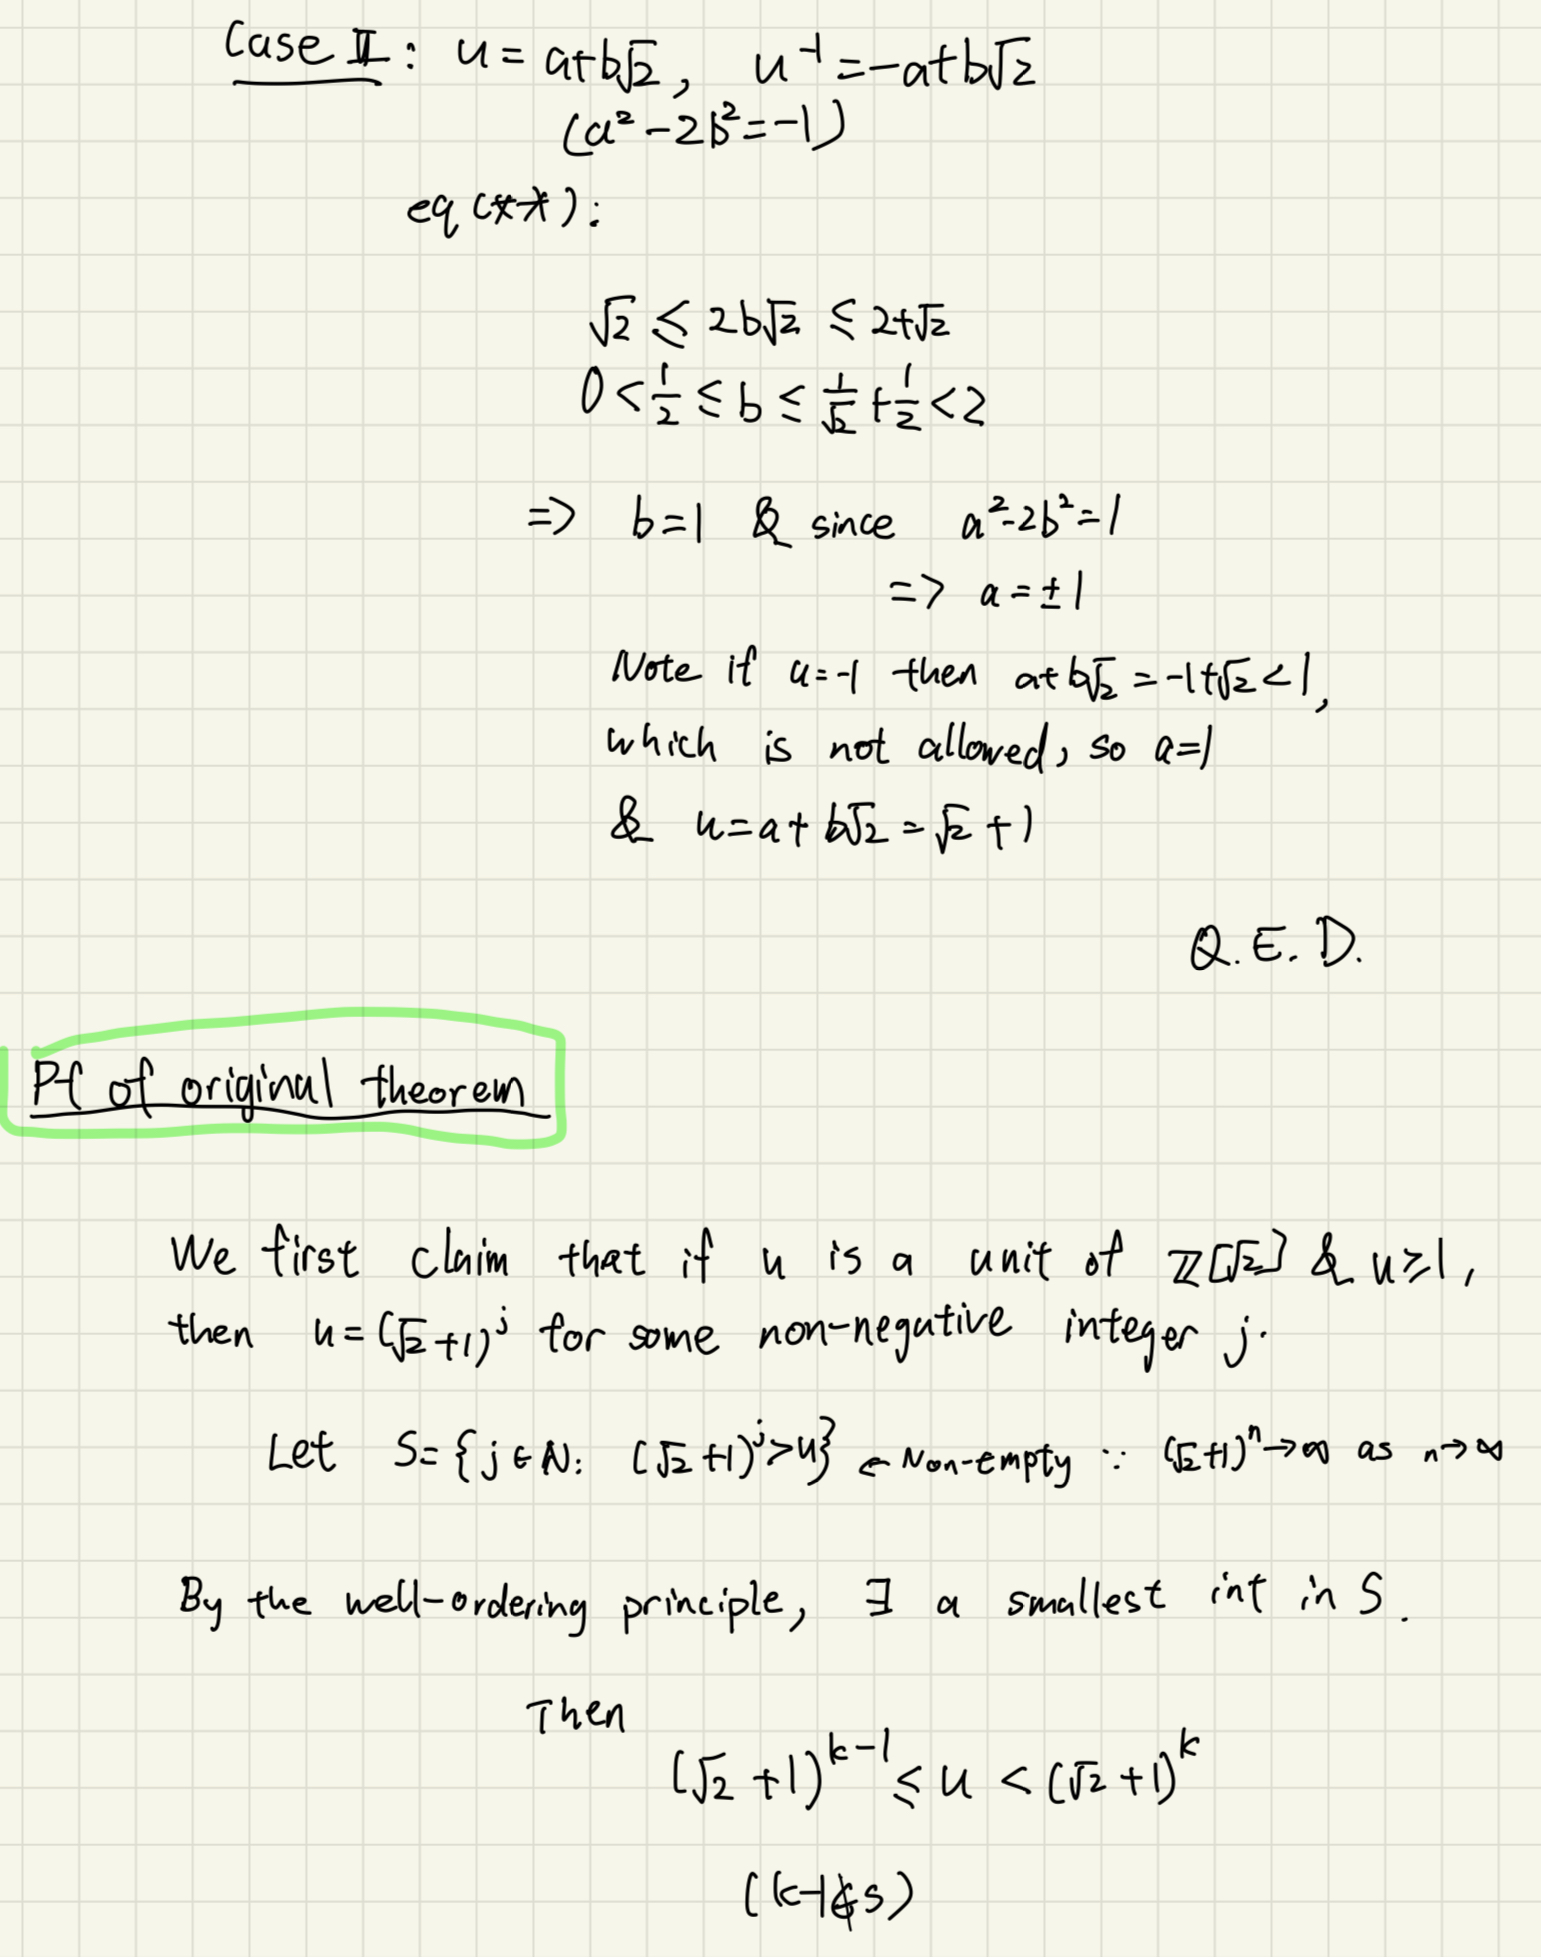 Case II: u = a+b√2, u⁻¹ = -a+b√2
(a² - 2b² = -1)
eq (**):
√2 ≤ 2b√2 ≤ 2+√2
0 < 1/2 ≤ b ≤ 1/√2 + 1/2 < 2
=> b=1 & since a²-2b²=1
=> a = ±1
Note if a=-1 then a+b√2 = -1+√2 < 1,
which is not allowed, so a=1
& u = a + b√2 = √2 + 1
Q.E.D.
Pf of original theorem
We first claim that if u is a unit of ℤ[√2] & u ≥ 1,
then u = (√2+1)ʲ for some non-negative integer j.
Let S = {j ∈ N: (√2+1)ʲ > u} ← Non-empty ∵ (√2+1)ⁿ → ∞ as n → ∞
By the well-ordering principle, ∃ a smallest int in S.
Then
(√2+1)ᵏ⁻¹ ≤ u < (√2+1)ᵏ
(k-1 ∉ S)